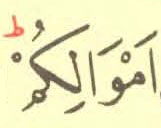 اَمْوَالِكُمْ ؕ